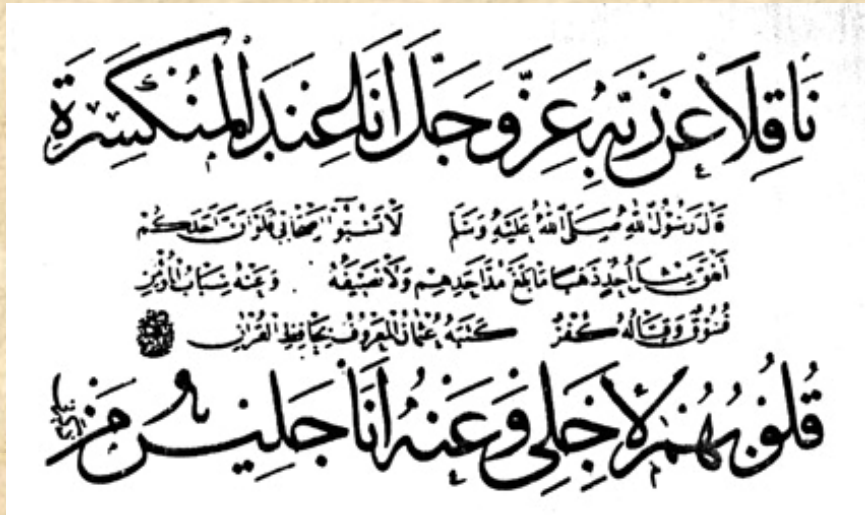 نَاقِلاً عَنْ رَبِّهِ عَزَّ وَجَلَّ اَنَا عِنْدَ الْمُنْكَسِرَةِ
قَالَ رَسُولُ اللهِ صَلَّى اللهُ عَلَيْهِ وَسَلَّمَ لَا تَسُبُّوا اَصْحَابِي فَلَوْ اَنَّ اَحَدَكُمْ
اَنْفَقَ مِثْلَ اُحُدٍ ذَهَبًا مَا بَلَغَ مُدَّ اَحَدِهِمْ وَلَا نَصِيفَهُ وَعَنْهُ سِبَابُ الْمُؤْمِنِ
فُسُوقٌ وَقِتَالُهُ كُفْرٌ كَتَبَهُ عُثْمَانُ الْمَعْرُوفُ بِحَافِظِ الْقُرْاٰنِ
قُلُوبُهُمْ لِاَجْلِي وَعَنْهُ اَنَا جَلِيسُ مَنْ